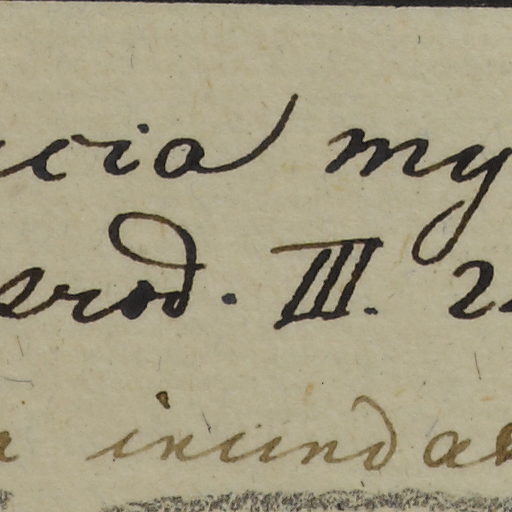 cia my
rod. III. 2
inundat